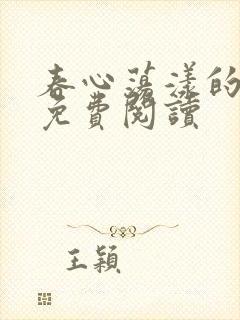 春心蕩漾的
免費閱讀
王穎